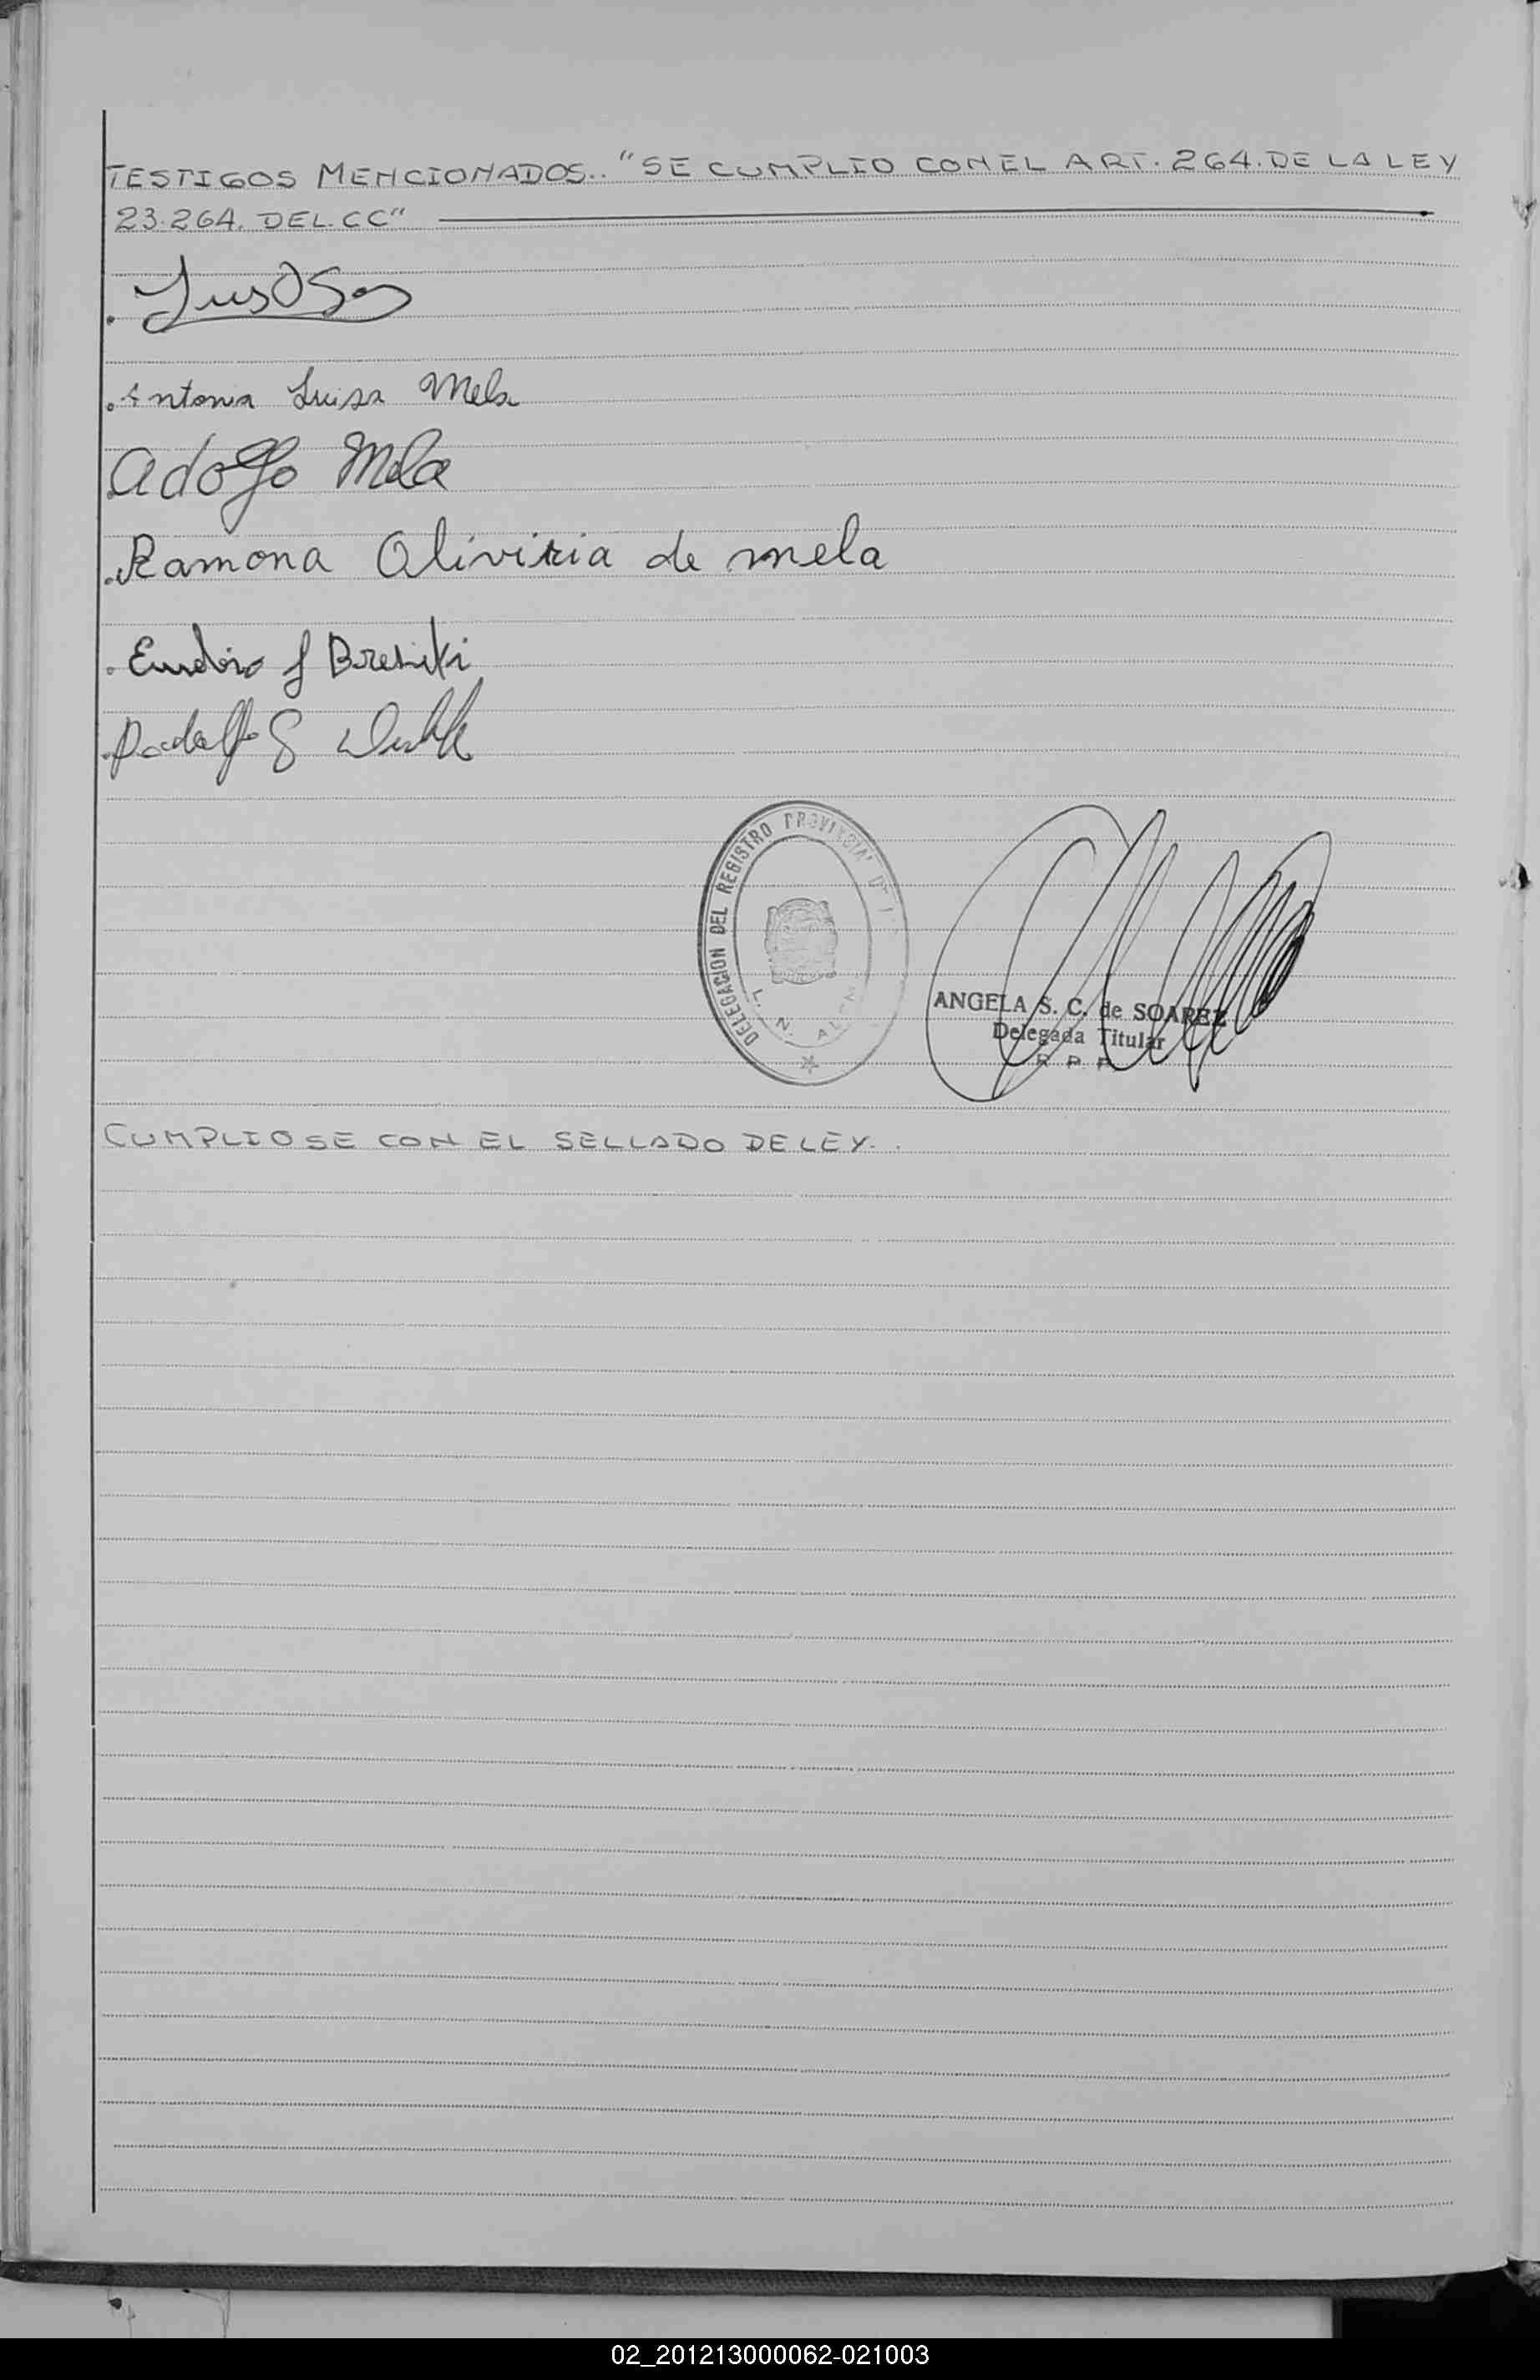 TESTIGOS MENCIONADOS.. "SE CUMPLIO CON EL ART. 264. DE LA LEY
23.264. DEL. CC"
Antonia Luisa Mela
Adolfo Mela
Ramona Oliviria de mela
DELEGACION DEL REGISTRO PROVINCIAL
L. N. ALEM
ANGELA S. C. de SOAREZ
Delegada Titular
R P P
CUMPLIOSE CON EL SELLADO DE LEY.
02_201213000062-021003